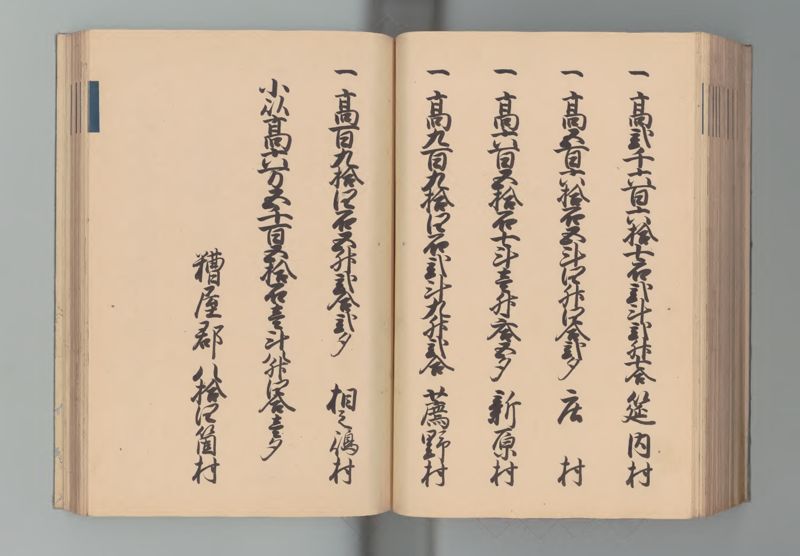 一 高弐千六百六拾七石弐斗弐升七合 筵内村
一 高五百六拾石五斗四升四合弐夕 庄村
一 高六百五拾石七斗壱升 合五夕 新原村
一 高九百九拾四石弐斗九升弐合 薦野村
一 高百九拾四石五升弐合弐夕 相之嶋村
小以高六万五千百五拾石壱斗 升四合壱夕
糟屋郡 八拾四箇村